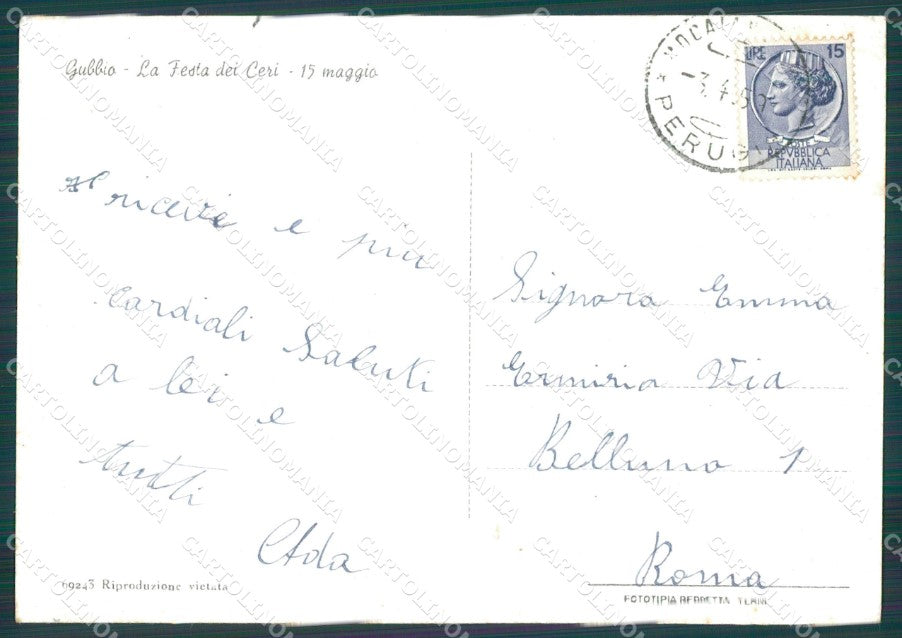 Gubbio - La Festa dei Ceri - 15 maggio
e più
Cordiali Saluti
a lei e
tutti
Ada
69243 Riproduzione vietata
PERUGIA
LIRE 15
POSTE
REPVBBLICA
ITALIANA
Signora Emma
Erminia Via
Belluno 1
Roma
FOTOTIPIA BERRETTA TERNI
CARTOLINOMANIA